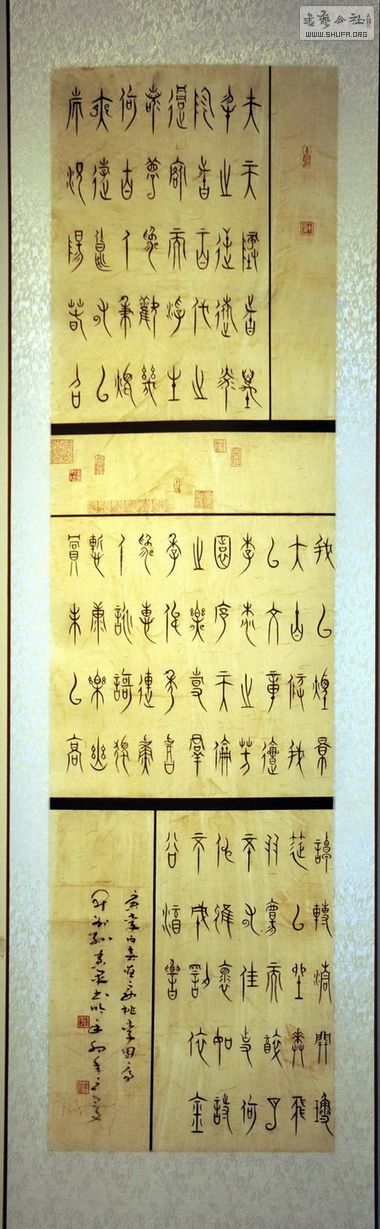 書藝公社
WWW.SHUFA.ORG
夫天地者萬
物之逆旅光
陰者百代之
過客而浮生
若夢為歡幾
何古人秉燭
夜遊良有以
也況陽春召
我以煙景
大塊假我
以文章會
桃李之芳
園序天倫
之樂事群
季俊秀皆
為惠連吾
人詠歌獨
慚康樂幽
賞未已高
談轉清開瓊
筵以坐花飛
羽觴而醉月
不有佳作何
伸雅懷如詩
不成罰依金
谷酒數